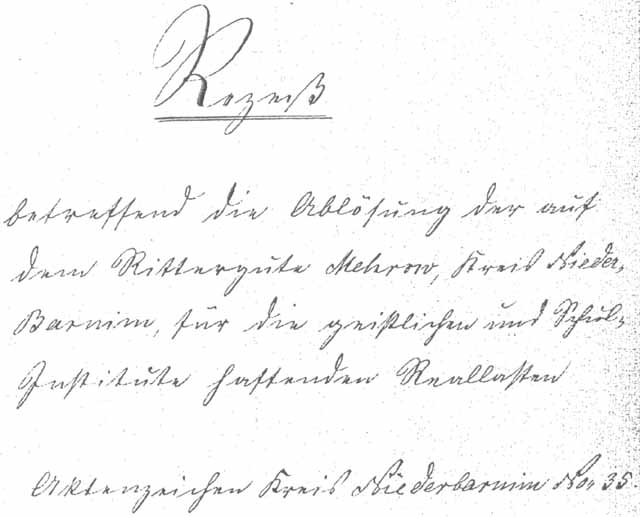 Rezeß
betreffend die Ablösung der auf
dem Rittergute Mehrow, Kreis Nieder-
Barnim, für die geistlichen und Schul-
Institute haftenden Reallasten
Aktenzeichen Kreis Niederbarnim No. 35.